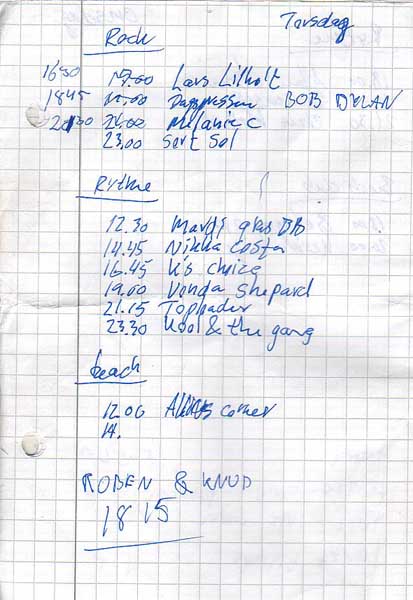 Torsdag
Rock
1630 17.00 Lars Lilholt
1845 Dagpressen BOB DYLAN
2130 21.00 Melanie C
23.00 Sort Sol
Rytme
12.30 Mardi gras BB
14.45 Nikka Costa
16.45 K's choice
19.00 Vonda Shepard
21.15 Toploader
23.30 Kool & the gang
beach
12.00 corner
14.
ROBEN & KNUD
1815